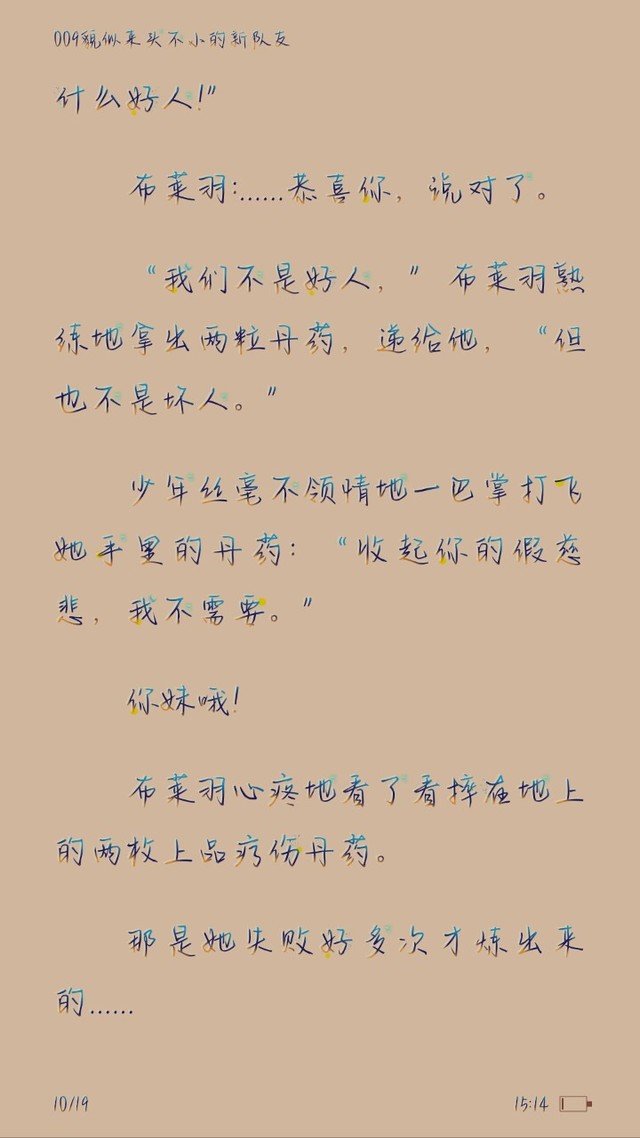 009貌似来头不小的新队友
什么好人!”
布莱羽:……恭喜你，说对了。
“我们不是好人，”布莱羽熟
练地拿出两粒丹药，递给他，“但
也不是坏人。”
少年丝毫不领情地一巴掌打飞
她手里的丹药：“收起你的假慈
悲，我不需要。”
你妹哦!
布莱羽心疼地看了看摔在地上
的两枚上品疗伤丹药。
那是她失败好多次才炼出来
的……
10/19
15:14